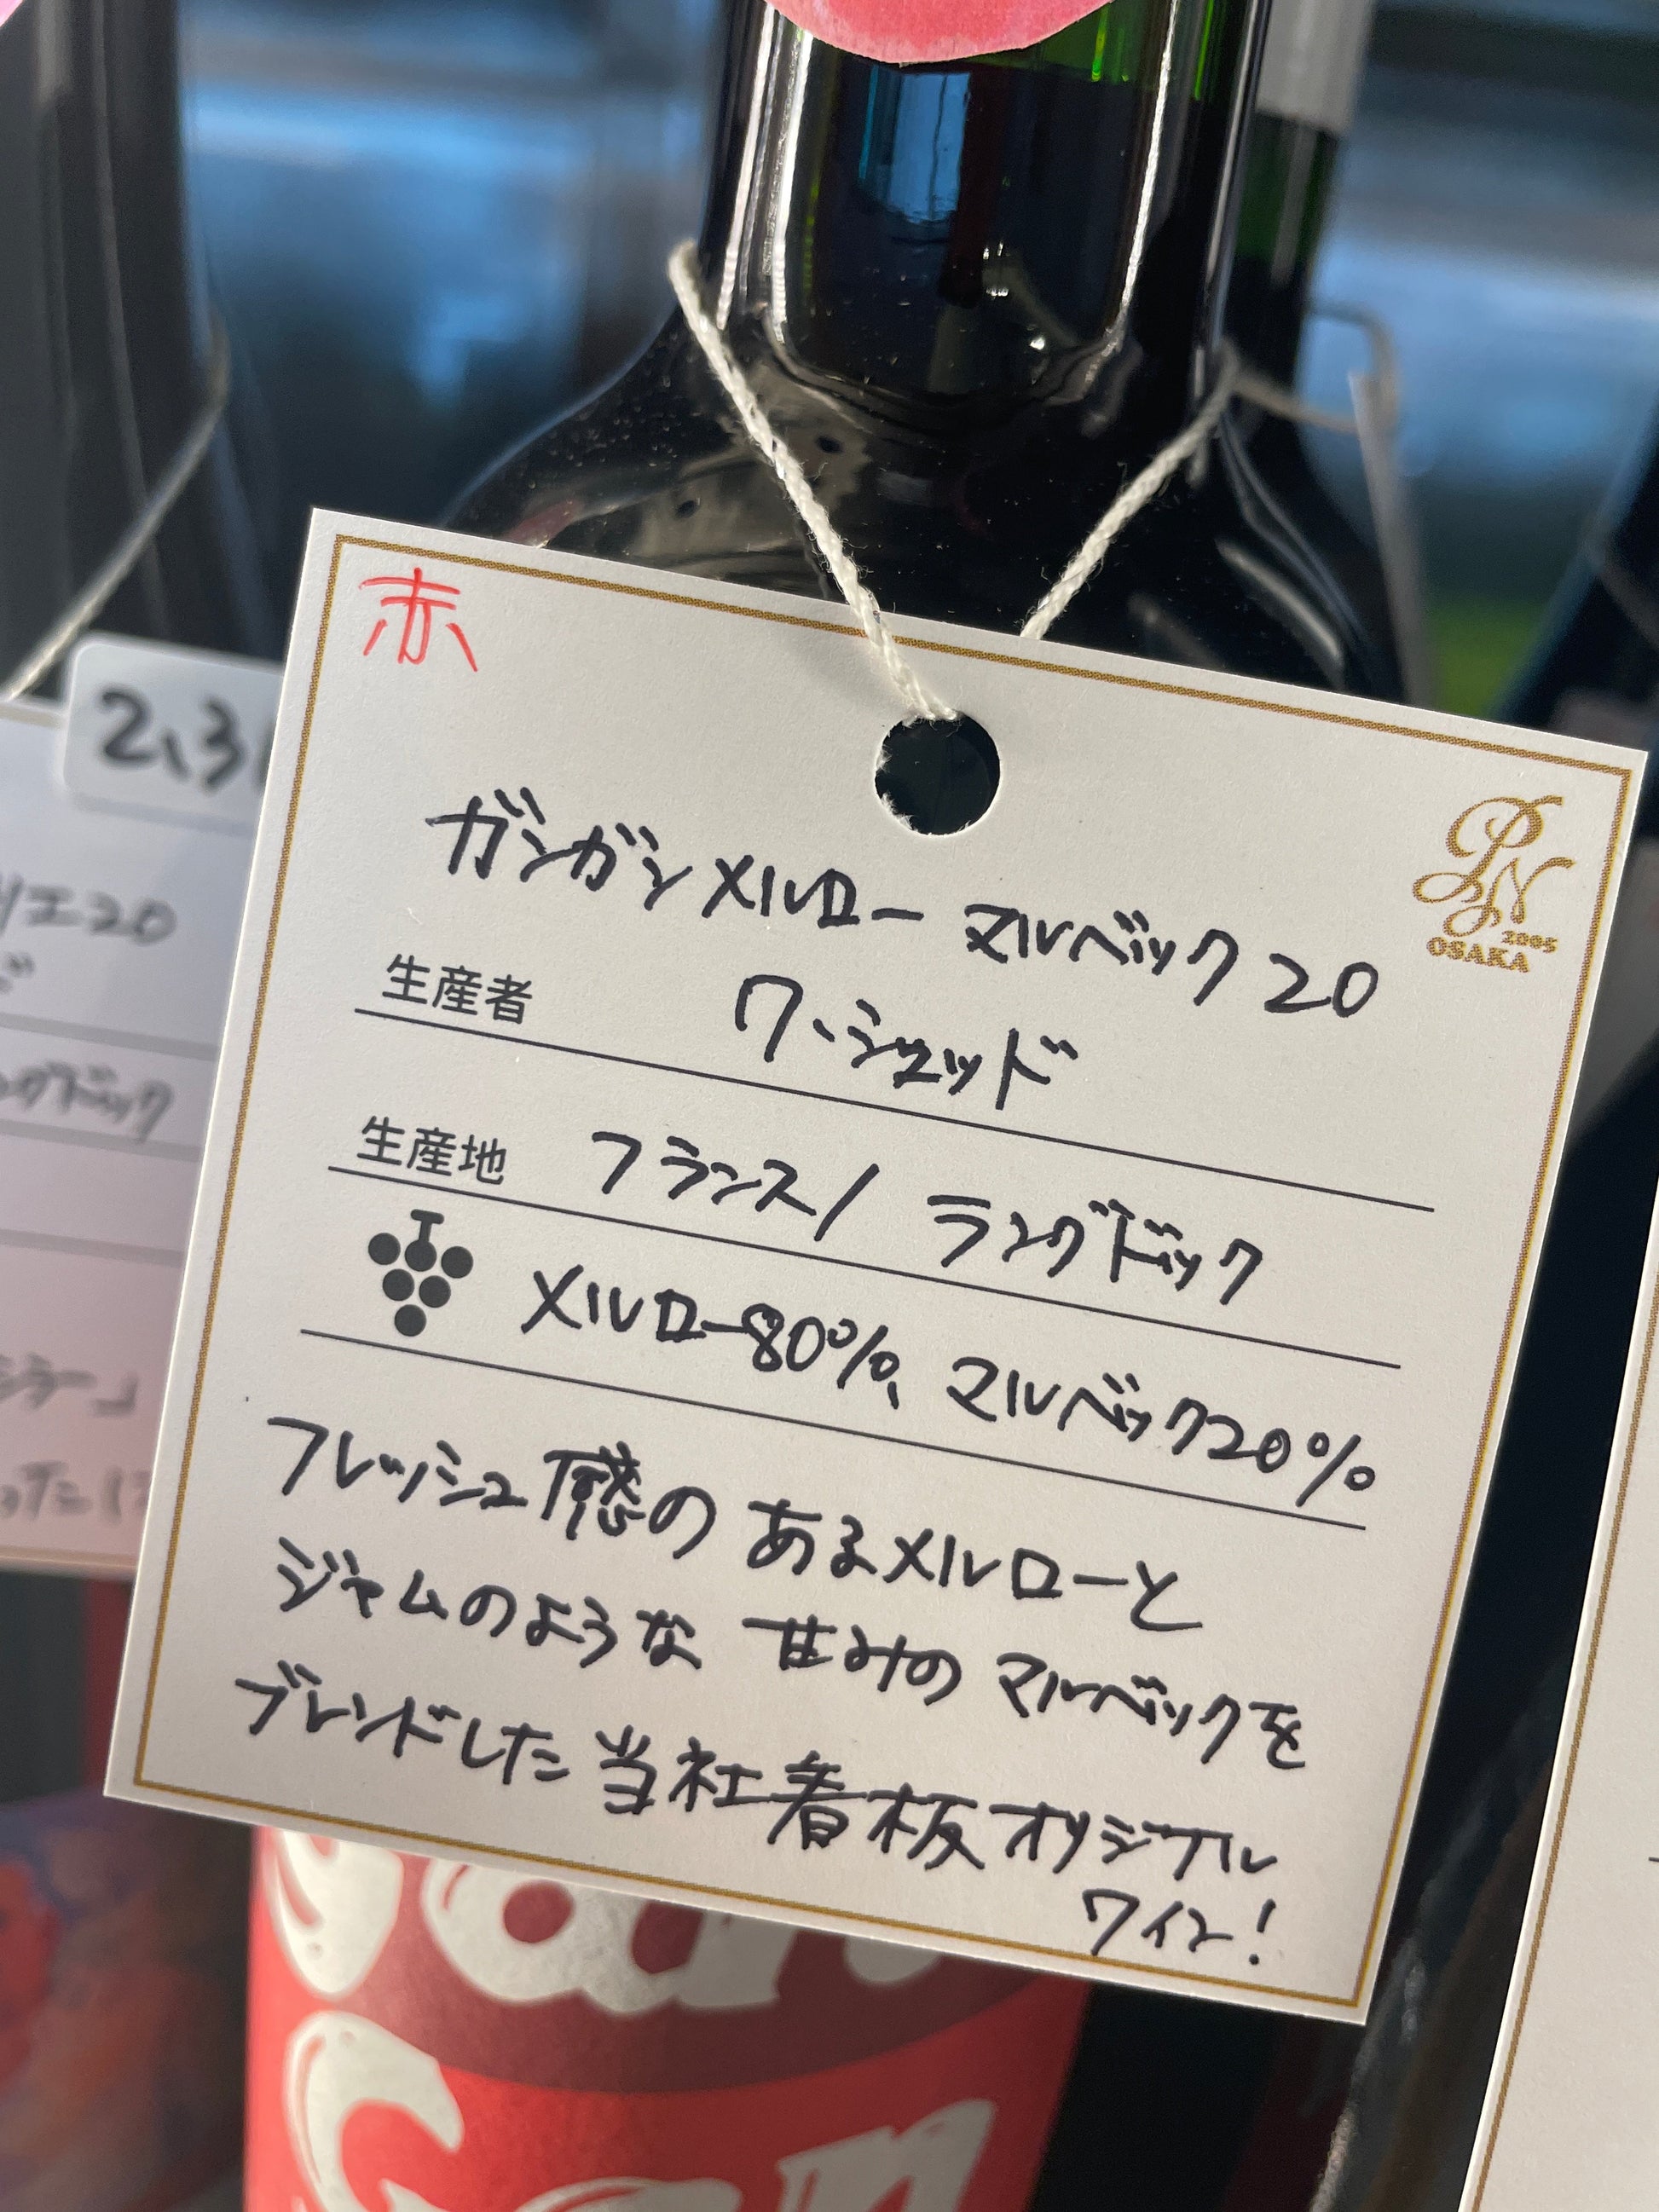 赤
PN
2005
OSAKA
ガンガンメルロー マルベック 20
生産者 ワ・シェッド
生産地 フランス/ ラングドック
メルロー80%、マルベック20%
フレッシュ感の あるメルローと
ジャムのような 甘みの マルベックを
ブレンドした 当社看板オリジナル
ワイン!
2,3
リエ20
ングドック
シラー」
Gan
Gan